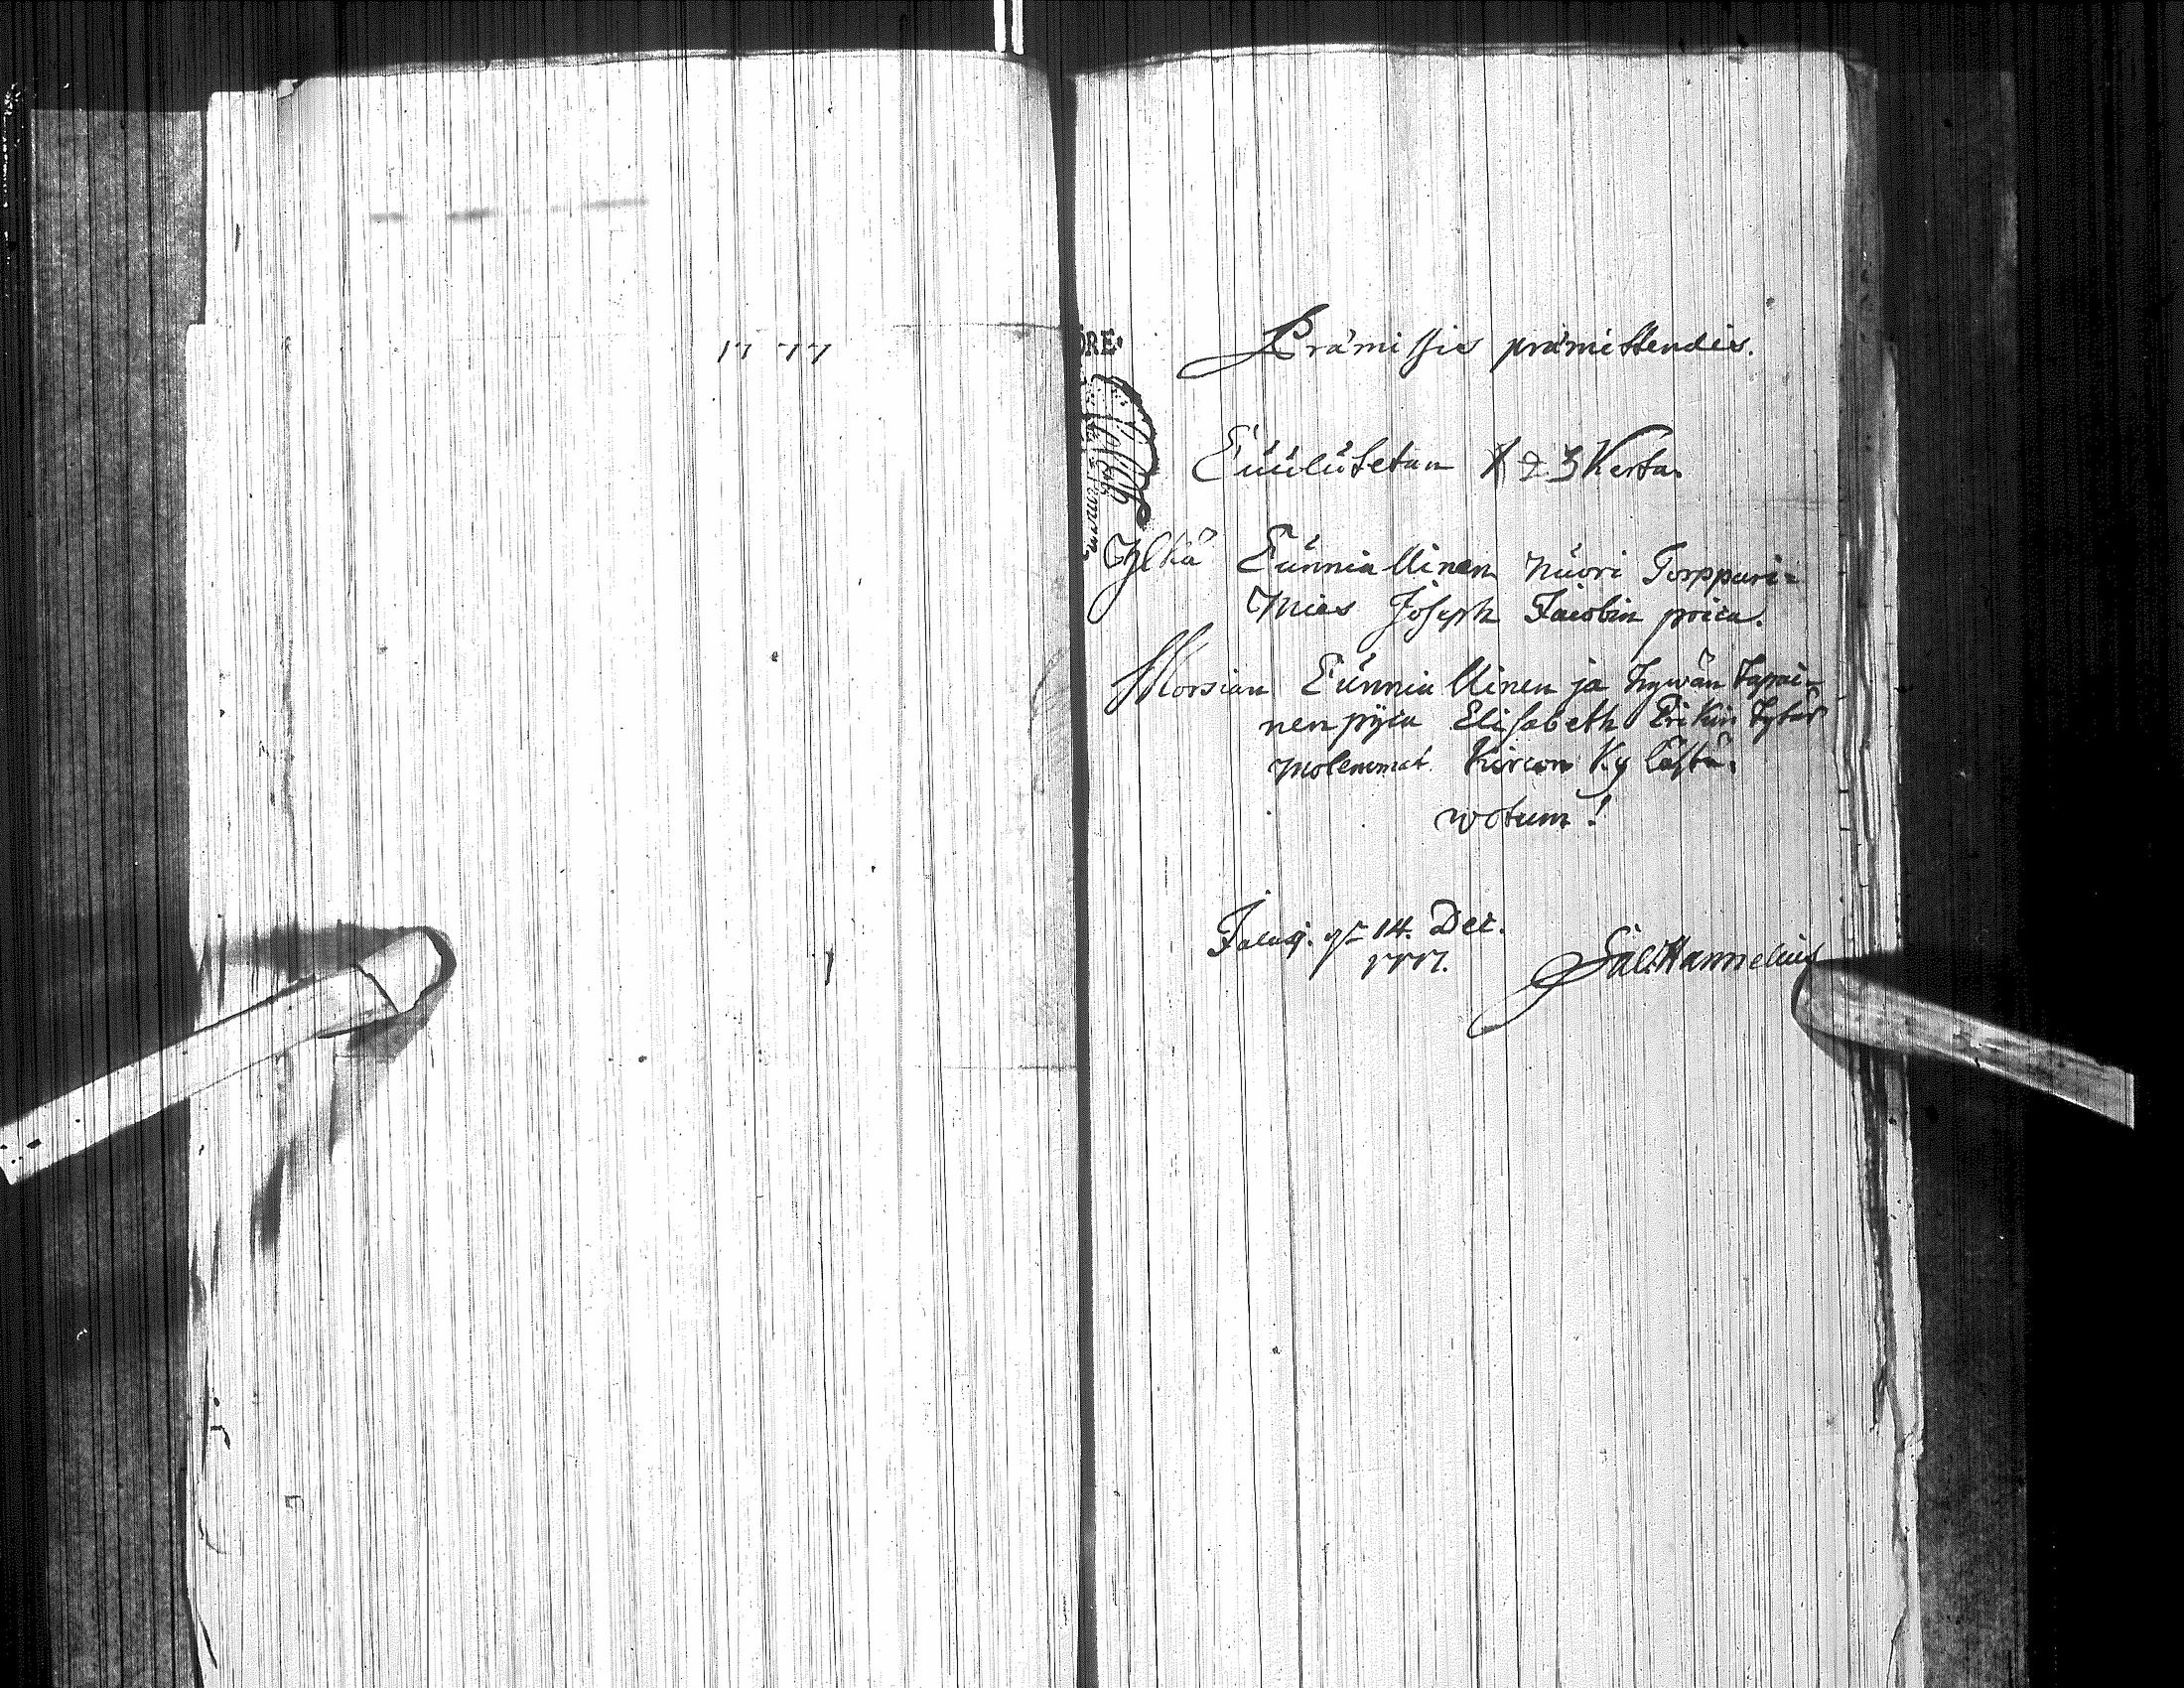 1777
ÖRE.
Præmissis præmittendis.
Cuulutetan 1 2 3 Kerta.
Ylkä Cunnialinen nuori Torppari=
Mies Joseph Jacobin poica.
Morsian Cunnialinen ja hywän tapai=
nen pijca Elisabeth Erikin tytär
molemmat Kircon Kylästä.
wotum!
14. Dec.
1777.
Sal: Hannelius